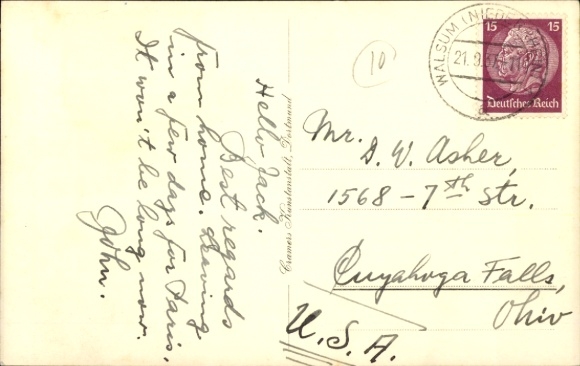 Hello Jack.
Best regards
from home. Leaving
in a few days for Paris.
It won't be long now.
John.
Cramers Kunstanstalt, Dortmund
10
WALSUM
21.9.
15 15
Deutsches Reich
Mr.
D. W. Asher,
1568 - 7th Str.
Cuyahoga Falls,
Ohio
U.S.A.